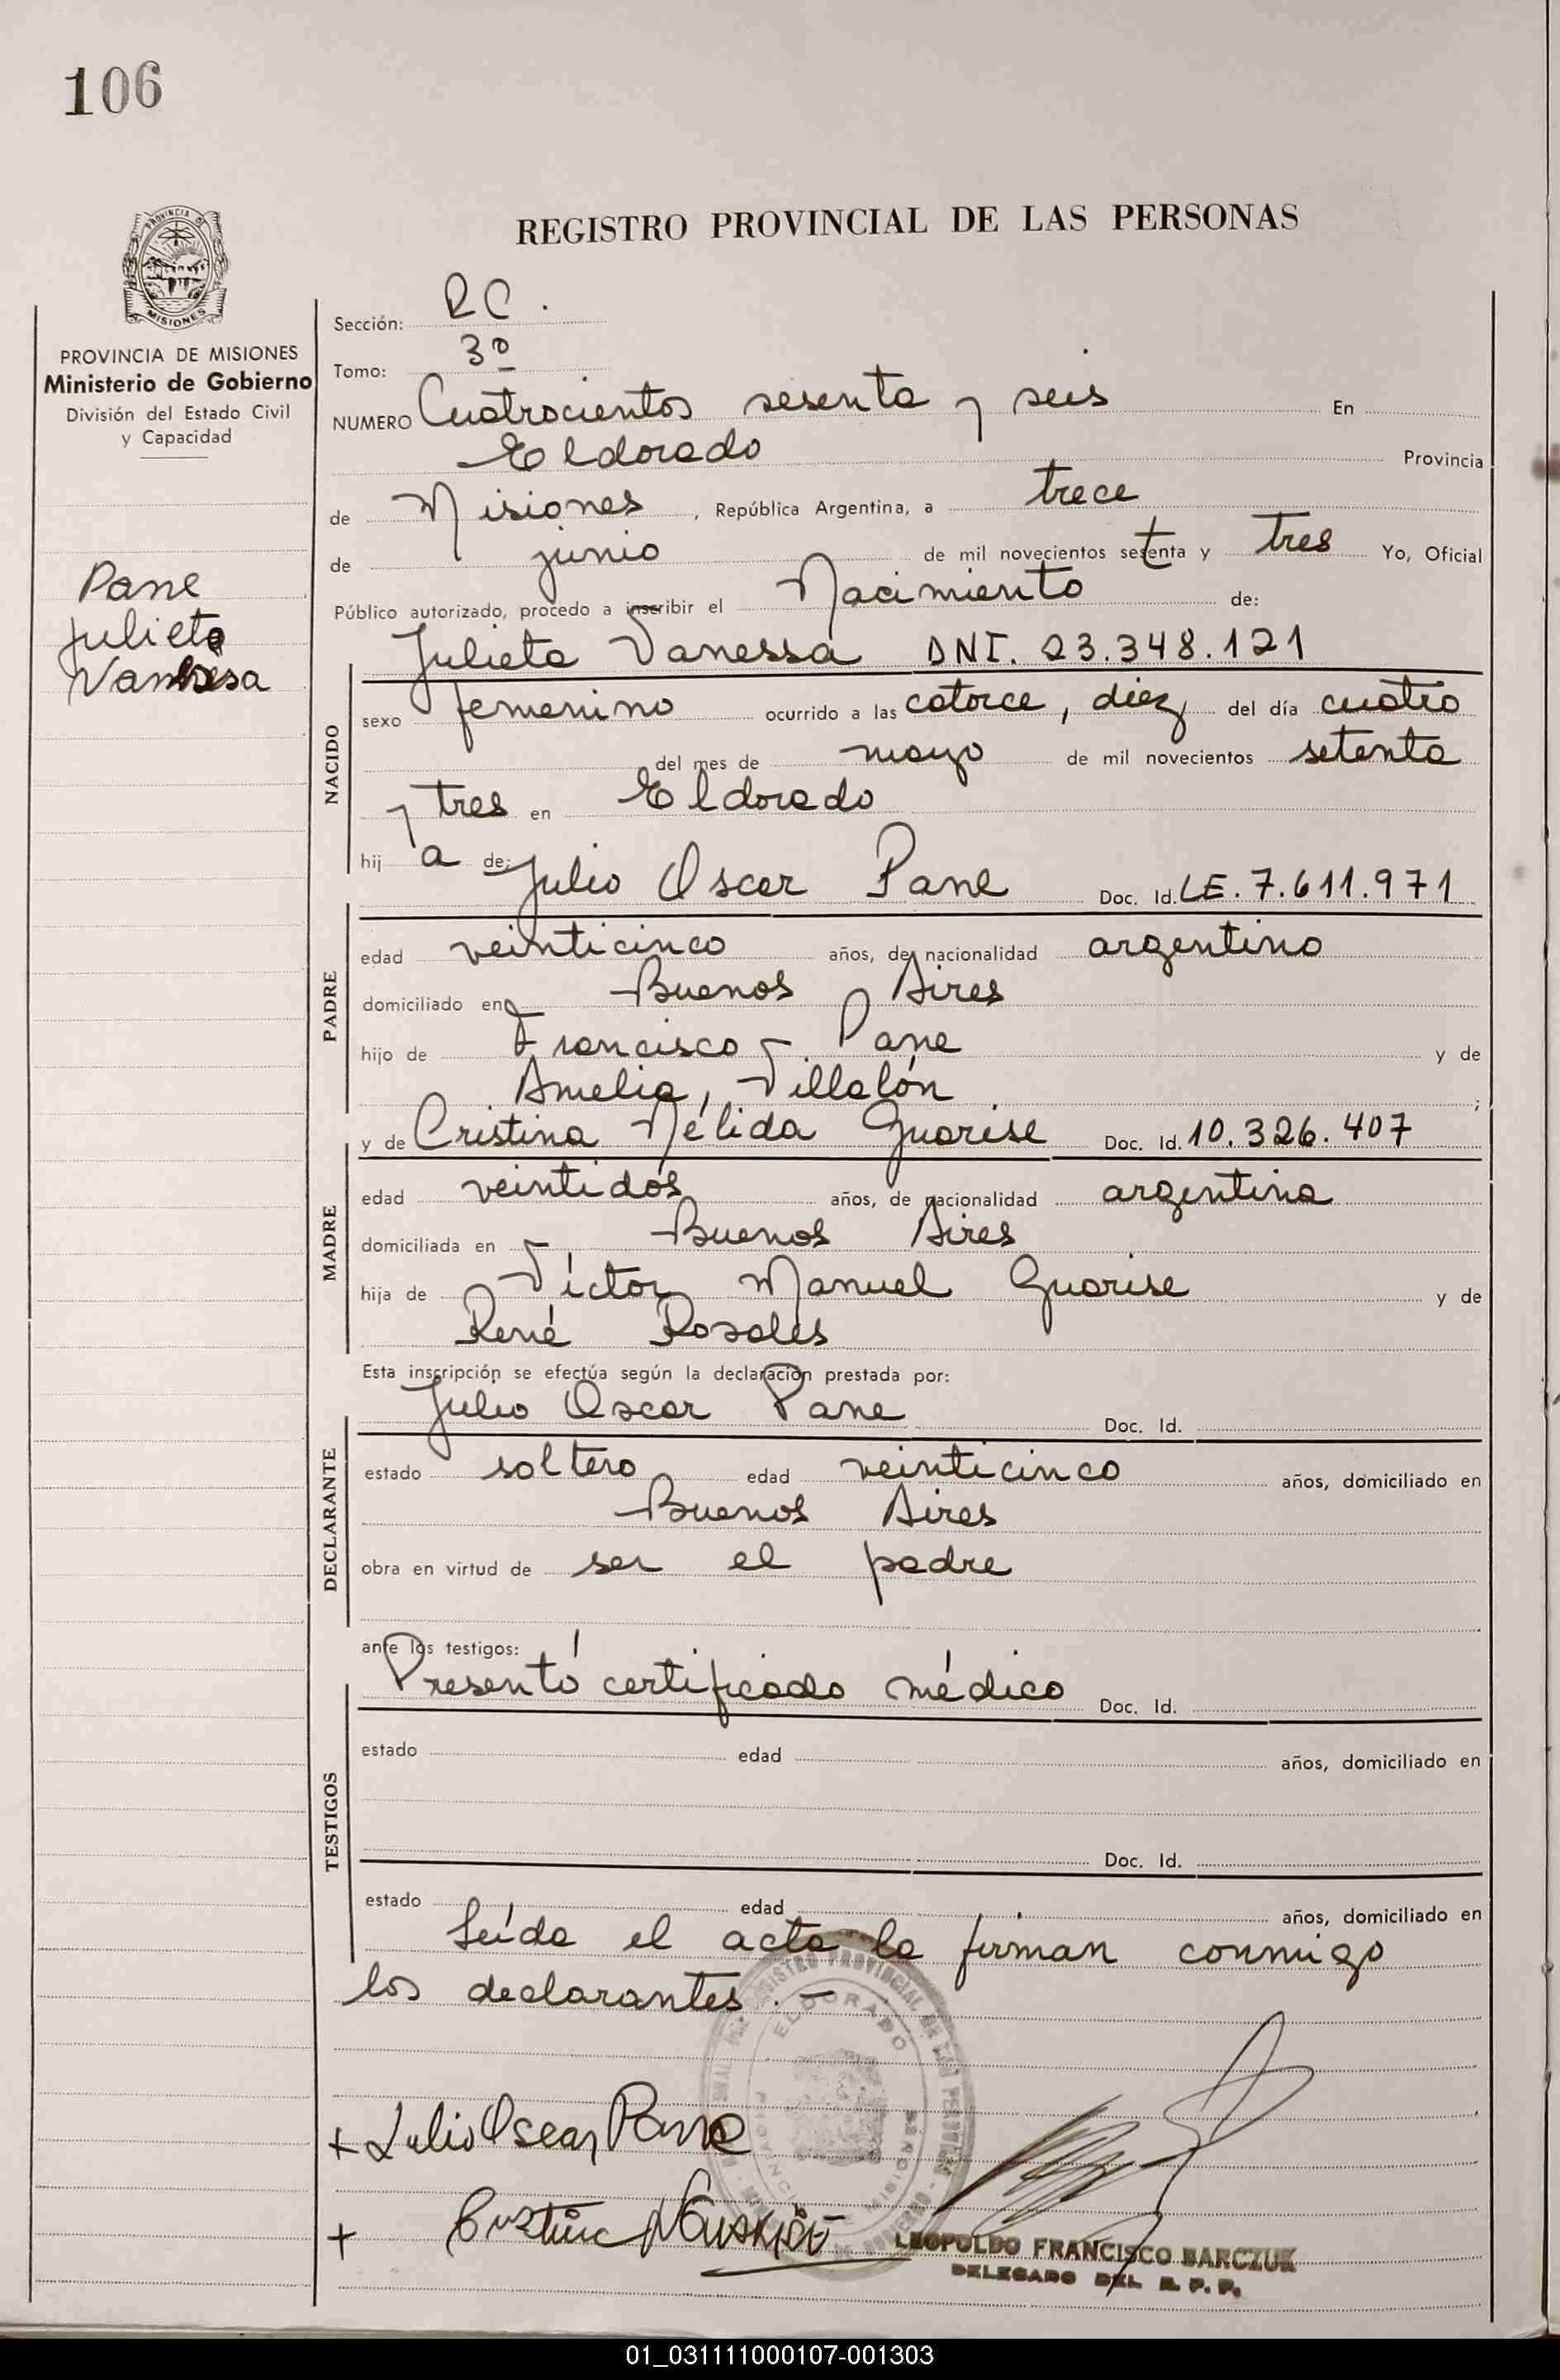 106
PROVINCIA DE MISIONES
MISIONES
PROVINCIA DE MISIONES
Ministerio de Gobierno
División del Estado Civil
y Capacidad
Pane
Julieta
Vanessa
REGISTRO PROVINCIAL DE LAS PERSONAS
Sección: RC.
Tomo: 3º
NUMERO Cuatrocientos sesenta y seis En
Eldorado Provincia
de Misiones, República Argentina, a trece
de junio de mil novecientos setenta y tres Yo, Oficial
Público autorizado, procedo a inscribir el Nacimiento de:
Julieta Vanessa DNI. 23.348.121
NACIDO
sexo femenino ocurrido a las catorce, diez del día cuatro
del mes de mayo de mil novecientos setenta
y tres en Eldorado
hij a de: Julio Oscar Pane Doc. Id. LE. 7.611.971
PADRE
edad veinticinco años, de nacionalidad argentino
domiciliado en Buenos Aires
hijo de Francisco Pane y de
Amelia Villalón ;
y de Cristina Nélida Guarise Doc. Id. 10.326.407
MADRE
edad veintidós años, de nacionalidad argentina
domiciliada en Buenos Aires
hija de Víctor Manuel Guarise y de
René Rosales
Esta inscripción se efectúa según la declaración prestada por:
Julio Oscar Pane Doc. Id.
DECLARANTE
estado soltero edad veinticinco años, domiciliado en
Buenos Aires
obra en virtud de ser el padre
ante los testigos:
Presentó certificado médico Doc. Id.
TESTIGOS
estado edad años, domiciliado en
Doc. Id.
estado edad años, domiciliado en
Leída el acta la firman conmigo
los declarantes.-
ELDORADO
MISIONES
+ Julio Oscar Pane
+ Cristina N Guarise
LEOPOLDO FRANCISCO BARCZUK
DELEGADO DEL R. P. P.
01_031111000107-001303